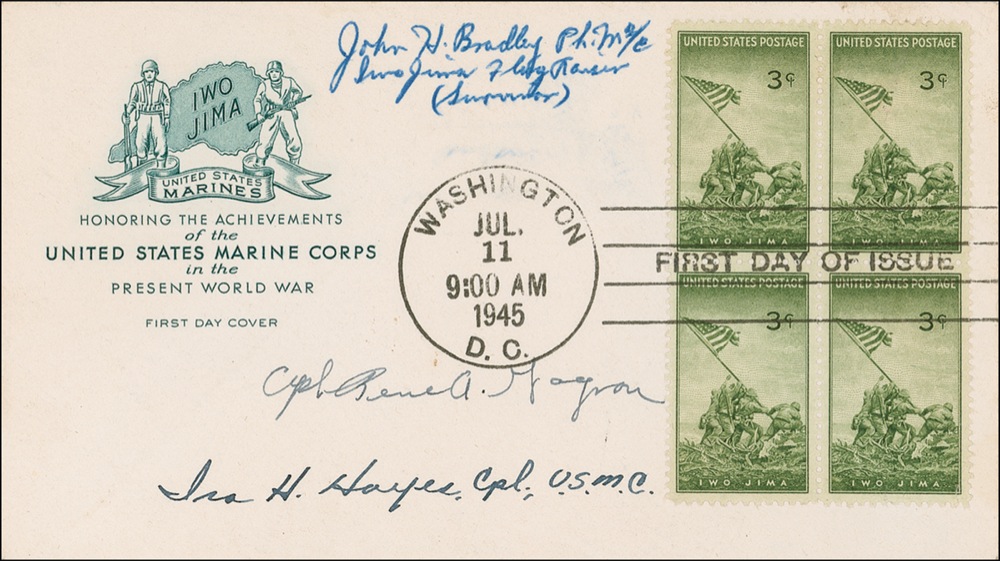 John H. Bradley Ph.M 2/c
Iwo Jima Flag Raiser
(Survivor)
IWO
JIMA
UNITED STATES
MARINES
HONORING THE ACHIEVEMENTS
of the
UNITED STATES MARINE CORPS
in the
PRESENT WORLD WAR
FIRST DAY COVER
WASHINGTON
JUL.
11
9:00 AM
1945
D. C.
FIRST DAY OF ISSUE
UNITED STATES POSTAGE
3¢
IWO JIMA
UNITED STATES POSTAGE
3¢
IWO JIMA
UNITED STATES POSTAGE
3¢
IWO JIMA
UNITED STATES POSTAGE
3¢
IWO JIMA
Cpl Rene A. Gagnon
Ira H. Hayes, Cpl., U.S.M.C.